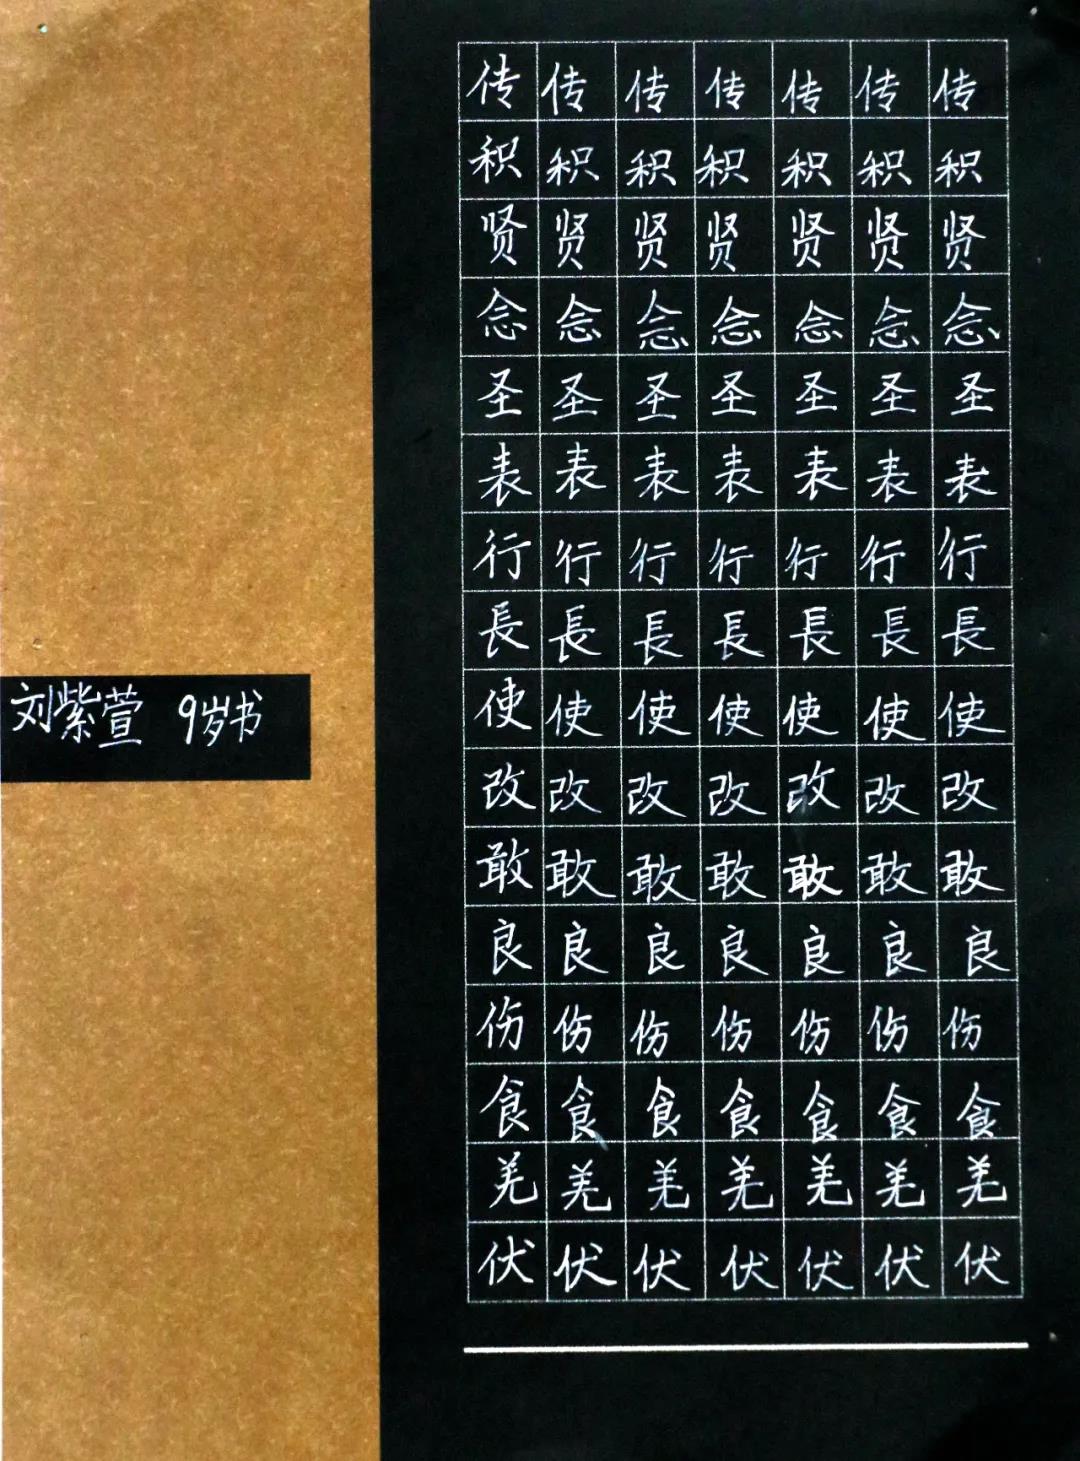 传传传传传传传
积积积积积积积
贤贤贤贤贤贤贤
念念念念念念念
圣圣圣圣圣圣圣
表表表表表表表
行行行行行行行
長長長長長長長
使使使使使使使
改改改改改改改
敢敢敢敢敢敢敢
良良良良良良良
伤伤伤伤伤伤伤
食食食食食食食
羌羌羌羌羌羌羌
伏伏伏伏伏伏伏
刘紫萱 9岁书